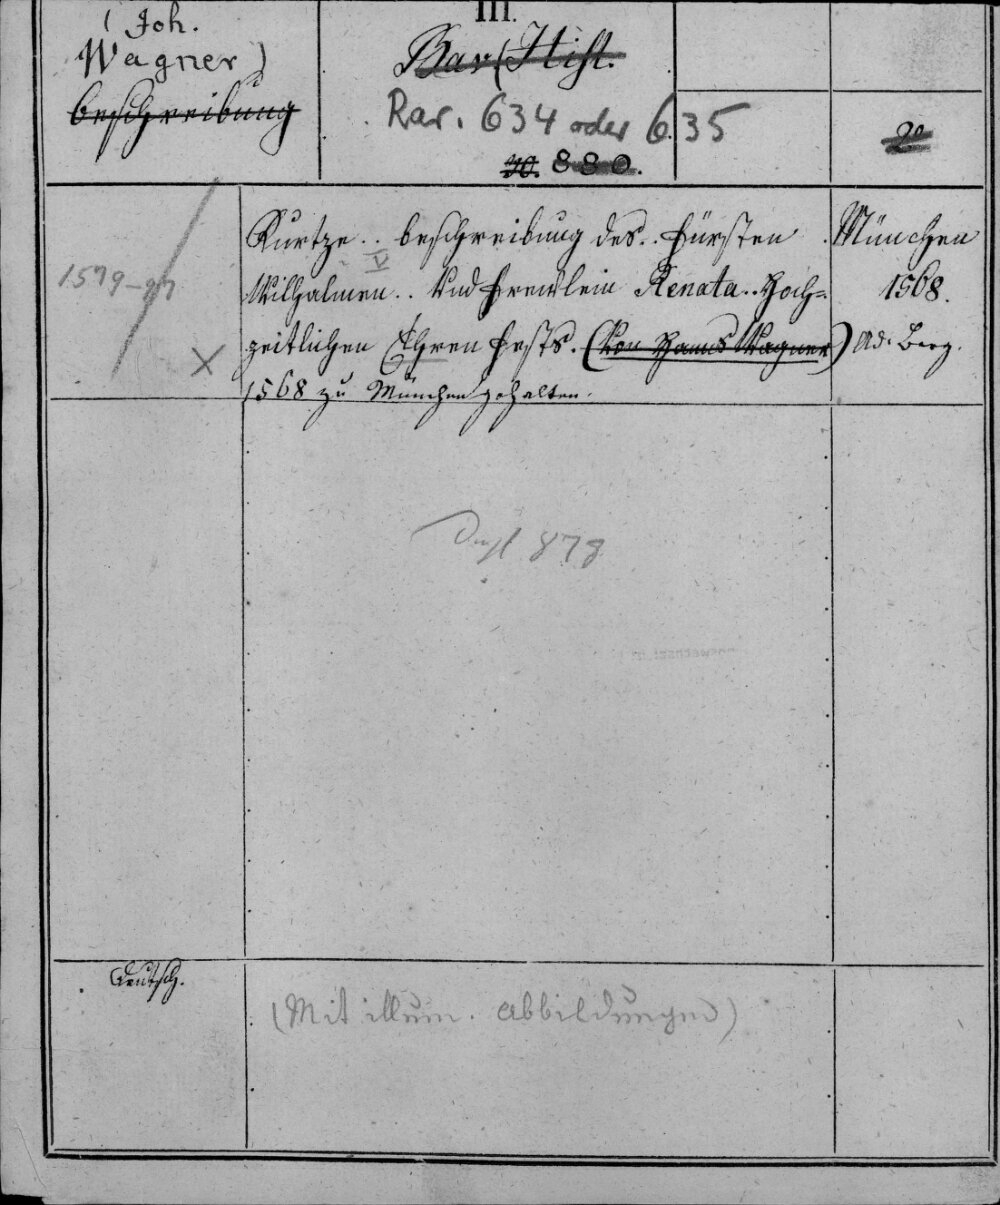 (Joh.
Wagner)
beschreibung
III.
Bav. (Hist.
Rar. 634 oder 635
40. 880.
2º
1579-97
Kurtze .. beschreibung des .. Fürsten
Wilhalmen .. V Und Frewlein Renata .. Hoch-
zeitlichen Ehren Fests. (Von Hanns Wagner)
1568 zu München gehalten.
München
1568.
Ad. Berg.
X
878
Deutsch.
(Mit illum. Abbildungen)